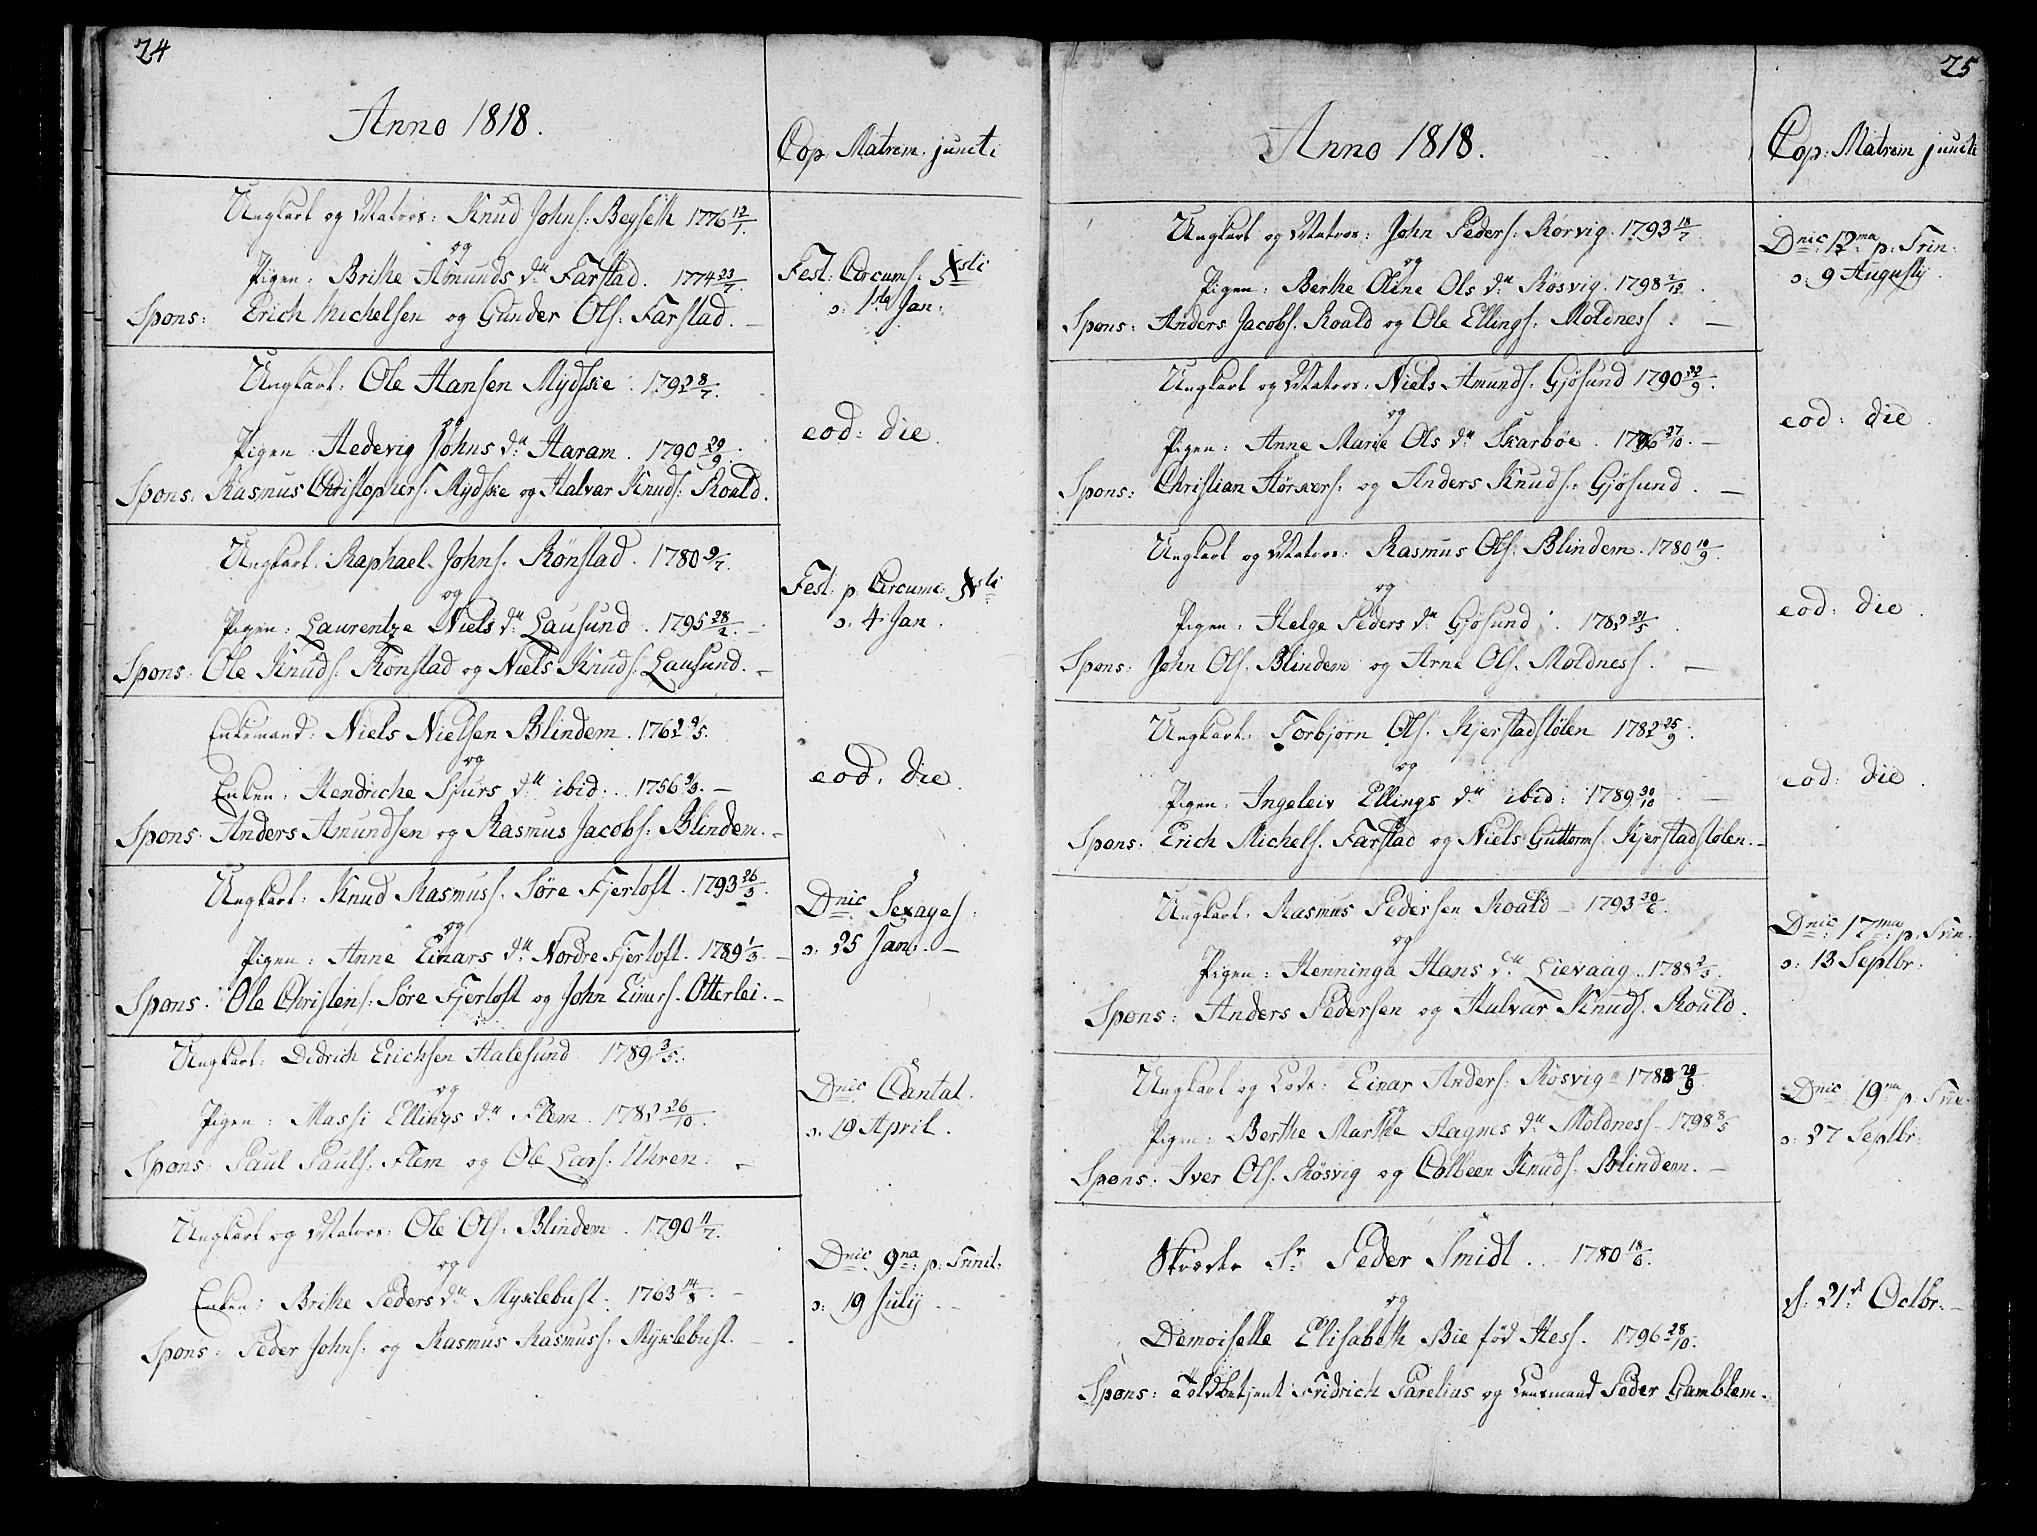 24
Anno 1818.
Cop: Matrim: juncti
Ungkarl og Matros: Knud Johns: Beyseth 1776 12/7.
og
Pigen: Brithe Amunds dtr Farstad. 1774 23/7.
Spons: Erich Michelsen og Gunder Ols: Farstad. —
Fest: Circums: Xsti
o: 1ste Jan:
Ungkarl: Ole Hansen Mydskie: 1792 8/7.
og
Pigen: Hedevig Johns dtr Haram. 1790 29/9.
Spons: Rasmus Christophers: Mydskie og Halvar Knuds: Roald.
eod: die.
Ungkarl: Raphael Johns: Rönstad. 1780 9/7.
og
Pigen: Laurentze Niels dtr Lausund. 1795 28/2. —
Spons: Ole Knuds: Rönstad og Niels Knuds: Lausund. —
Fest: p: Circumc: Xsti
o: 4 Jan.
Enkemand: Niels Nielsen Blindem. 1762 9/5.
og
Enken: Hendriche Siurs dtr ibid: 1756 9/3. —
Spons: Anders Amundsen og Rasmus Jacobs: Blindem. —
eod: die.
Ungkarl: Knud Rasmuss: Søre Fjertoft. 1793 26/3.
og
Pigen: Anne Einars dtr Nordre Fjertoft. 1789 1/3. —
Spons: Ole Christens: Søre Fjertoft og John Einers: Otterlei. —
Dnic: Sexages:
o: 25 Jan: —
Ungkarl: Didrich Erichsen Aalesund. 1789 3/5.
og
Pigen: Massi Ellings dtr Flem. 1782 26/10.
Spons: Paul Pauls: Flem og Ole Lars: Uhren. —
Dnic: Cantat.
o: 19 April.
Ungkarl og Matros: Ole Ols: Blindem. 1790 11/7.
og
Enken: Brithe Peders dtr Myklebust. 1763 14/3. —
Spons: Peder Johns: og Rasmus Rasmuss: Myklebust. —
Dnic: 9na: p: Trinit:
o: 19 July. —
25
Anno 1818.
Cop: Matrim juncti
Ungkarl og Matros: John Peders: Rørvig. 1793 18/7.
og
Pigen: Berthe Oline Ols dtr Røsvig. 1798 2/12.
Spons: Anders Jacobs: Roald og Ole Ellings: Moldness. —
Dnic: 12ma p: Trin:
o: 9 Augusty.
Ungkarl og Matros: Niels Amunds: Gjøsund 1790 22/9.
og
Pigen: Anne Marie Ols dtr Skarbøe. 1796 27/10. —
Spons: Christian Størkers: og Anders Knuds: Gjøsund. —
eod: die.
Ungkarl og Matros: Rasmus Ols: Blindem. 1780 10/9.
og
Pigen: Helge Peders dtr Gjøsund. 1782 21/5.
Spons: John Ols: Blindem og Arne Ols: Moldness. —
eod: die.
Ungkarl: Torbjørn Ols: Kjerstadstølen 1782 25/9.
og
Pigen: Ingeleiv Ellings dtr ibid: 1789 30/10. —
Spons: Erich Michels: Farstad og Niels Guttorms: Kjerstadstølen. —
eod: die.
Ungkarl: Rasmus Pedersen Roald — 1793 30/6.
og
Pigen: Henninga Hans dtr Lievaag. 1788 2/3.
Spons: Anders Pedersen og Halvar Knuds: Roald.
Dnic: 17ma: p: Trin:
o: 13 Septbr:
Ungkarl og Lods: Einar Anders: Røsvig — 1788 29/9.
og
Pigen: Berthe Marthe Aagnes dtr Moldness — 1798 8/5
Spons: Iver Ols: Røsvig og Colbeen Knuds: Blindem. —
Dnic: 19na p: Trin.
o: 27 Septbr:
Sr Peder Smidt. 1780 18/6.
og
Demoiselle Elisabeth Bie fød Hess. 1796 28/10.
Spons: Toldbetjent Fridrich Parelius og Lensmand Peder Gamblem.
d: 21d Octbr: —